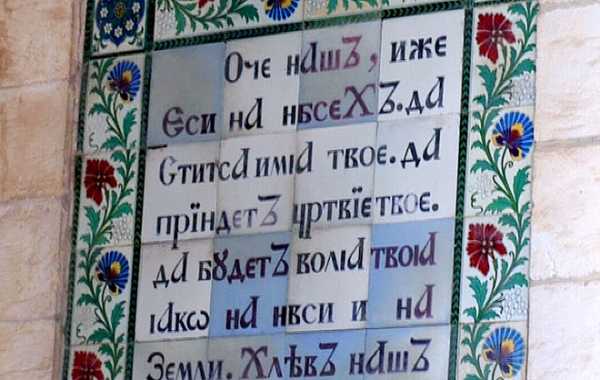 Оче нашъ, иже
Єси на нбсехъ.да
Ститса имıа твоє.да
прїидетъ цртвїе твоє.
да бꙋдетъ волıа твоıа
ıакѡ на нвси и на
Земли. Хлѣвъ нашъ